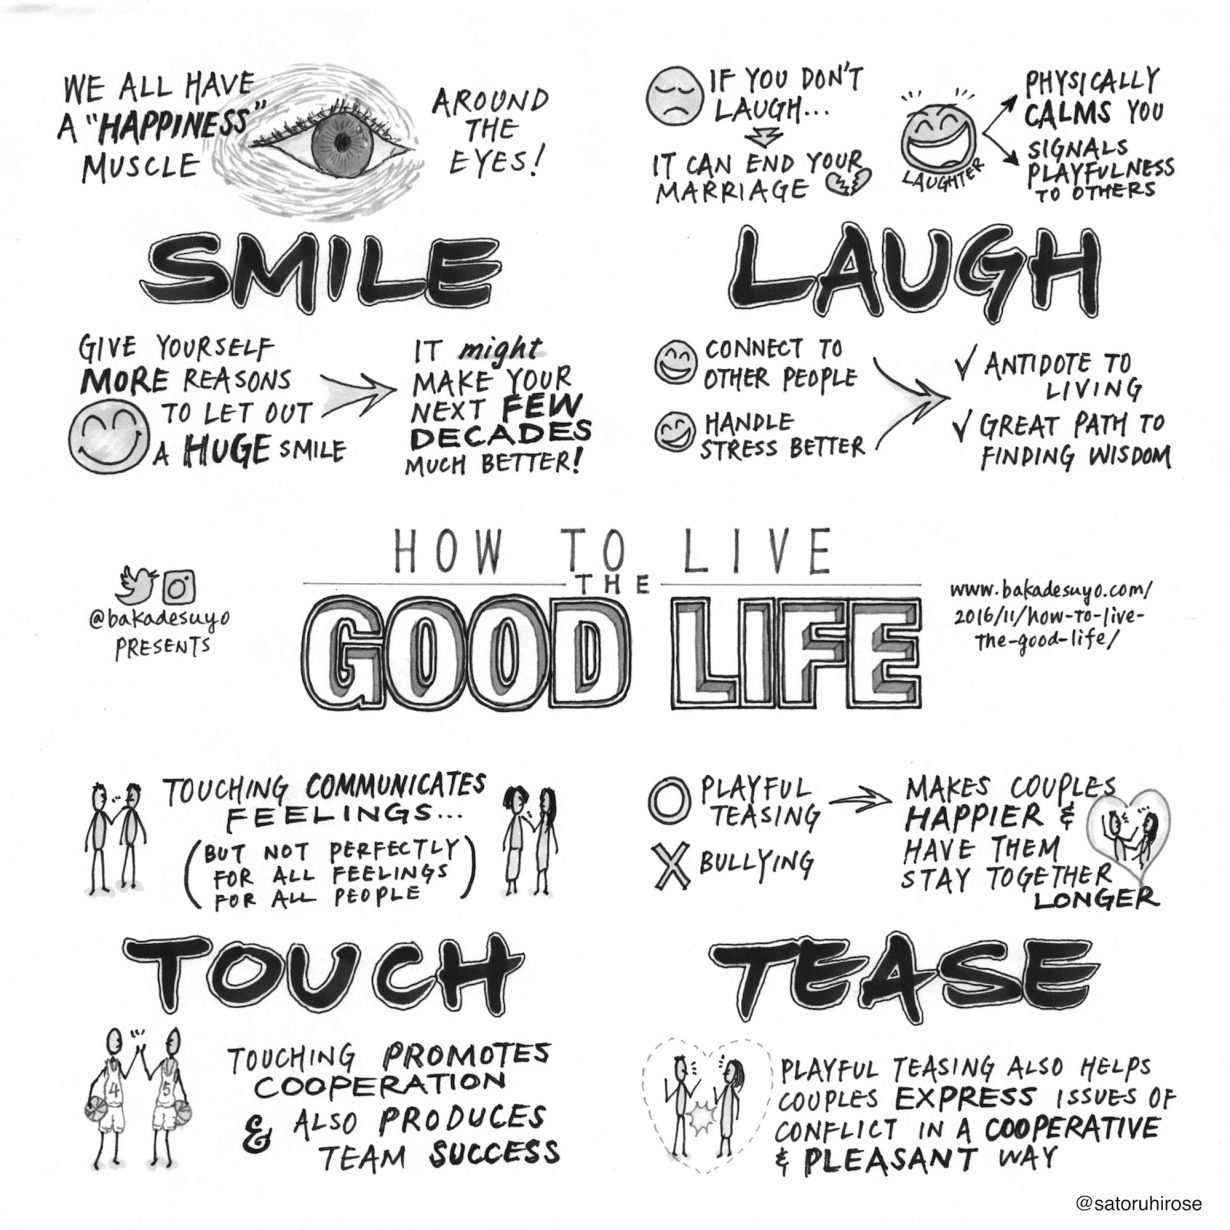 WE ALL HAVE
A "HAPPINESS"
MUSCLE
AROUND
THE
EYES!
SMILE
GIVE YOURSELF
MORE REASONS
TO LET OUT
A HUGE SMILE
IT might
MAKE YOUR
NEXT FEW
DECADES
MUCH BETTER!
IF YOU DON'T
LAUGH...
IT CAN END YOUR
MARRIAGE
LAUGHTER
PHYSICALLY
CALMS YOU
SIGNALS
PLAYFULNESS
TO OTHERS
LAUGH
CONNECT TO
OTHER PEOPLE
HANDLE
STRESS BETTER
✓ ANTIDOTE TO
LIVING
✓ GREAT PATH TO
FINDING WISDOM
@bakadesuyo
PRESENTS
HOW TO LIVE
THE
GOOD LIFE
www.bakadesuyo.com/
2016/11/how-to-live-
the-good-life/
TOUCHING COMMUNICATES
FEELINGS...
(BUT NOT PERFECTLY
FOR ALL FEELINGS
FOR ALL PEOPLE)
TOUCH
4
5
TOUCHING PROMOTES
COOPERATION
& ALSO PRODUCES
TEAM SUCCESS
PLAYFUL
TEASING
BULLYING
MAKES COUPLES
HAPPIER &
HAVE THEM
STAY TOGETHER
LONGER
TEASE
PLAYFUL TEASING ALSO HELPS
COUPLES EXPRESS ISSUES OF
CONFLICT IN A COOPERATIVE
& PLEASANT WAY
@satoruhirose